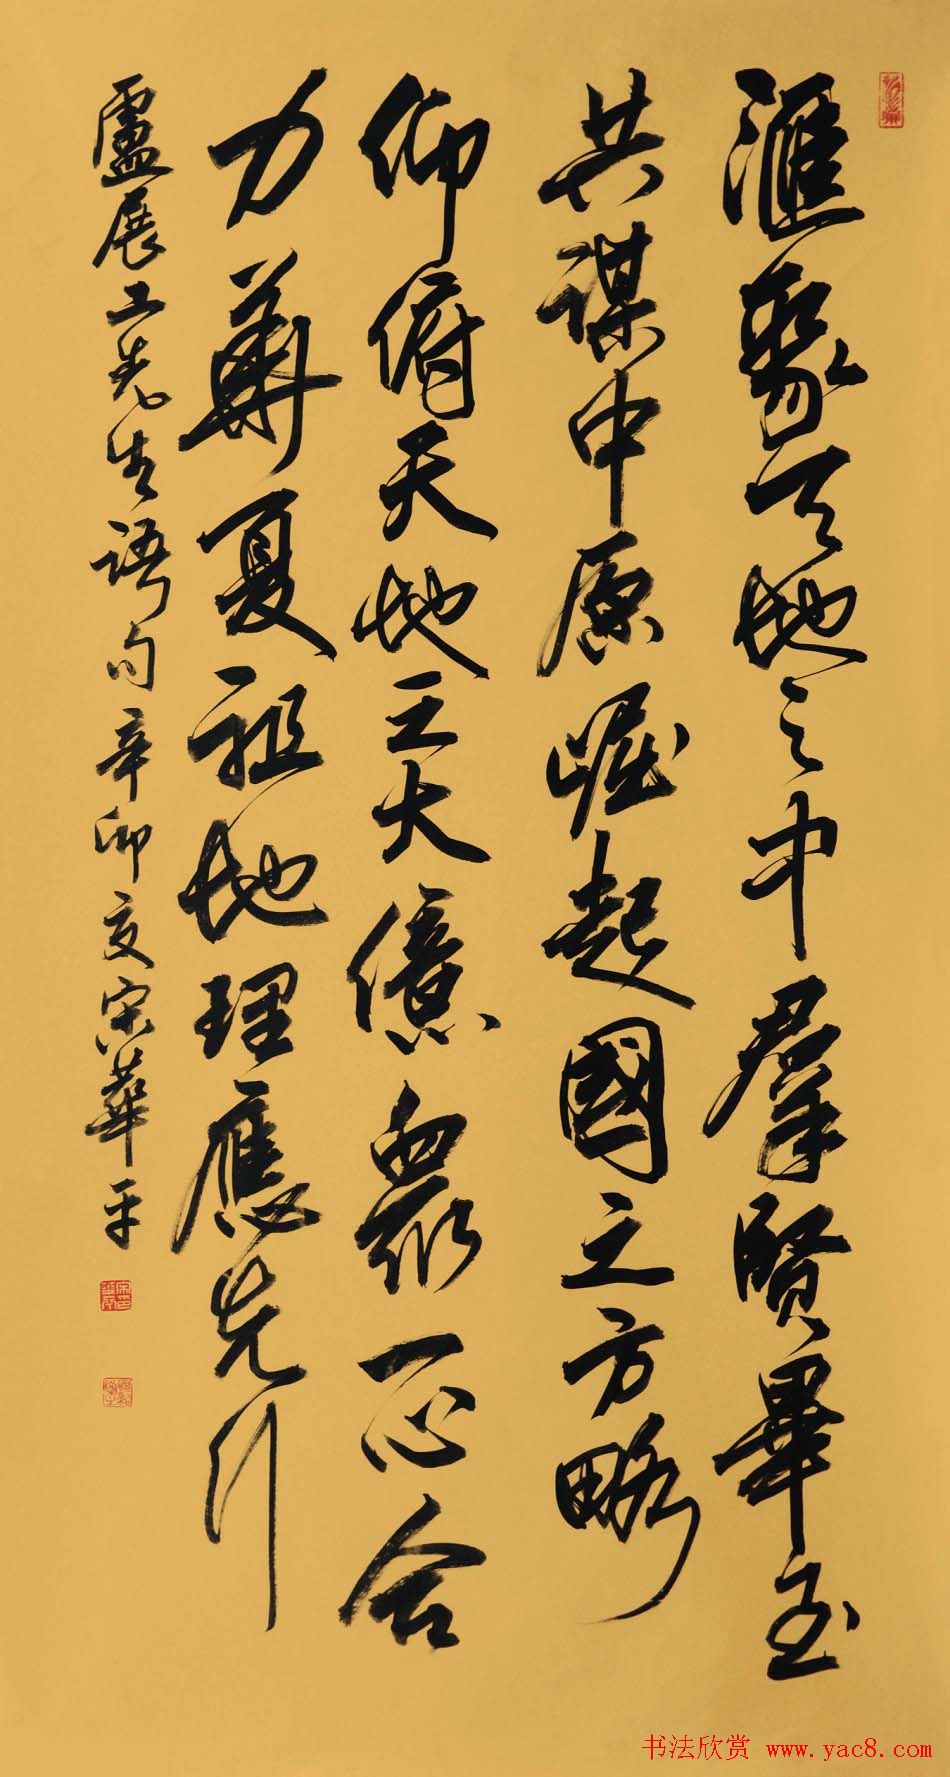 滙聚天地之中羣賢畢至
共謀中原崛起國之方略
仰俯天地之大億衆一心合
力華夏祖地理應先行
盧展工先生語句辛卯夏宋華平
书法欣赏 www.yac8.com